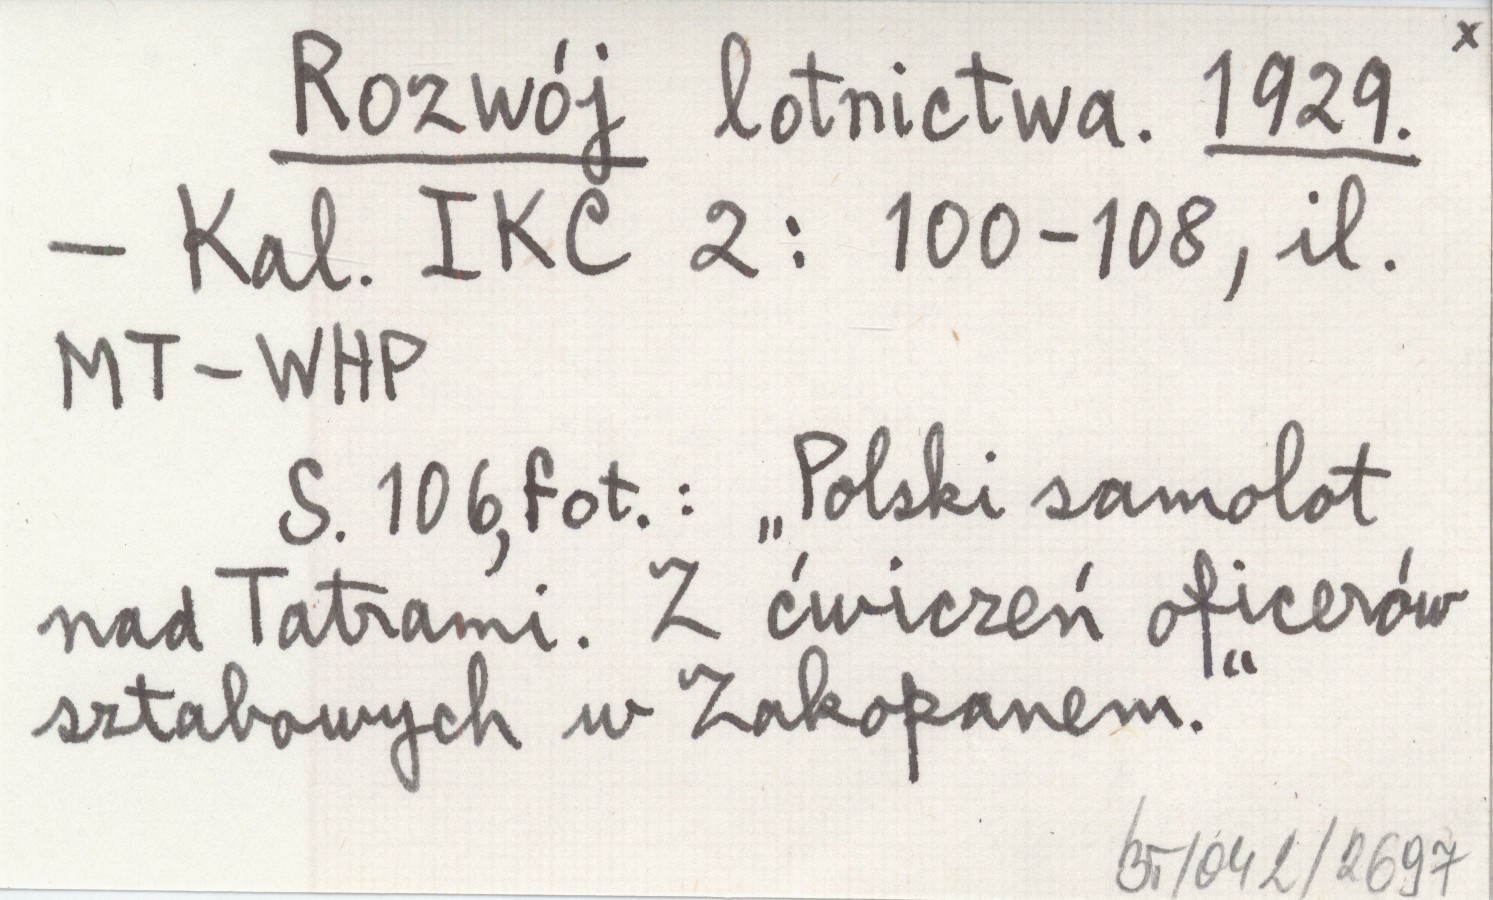 x
Rozwój lotnictwa. 1929.
– Kal. IKC 2: 100-108, il.
MT-WHP
S. 106, fot.: „Polski samolot
nad Tatrami. Z ćwiczeń oficerów
sztabowych w Zakopanem.“
/042/2697